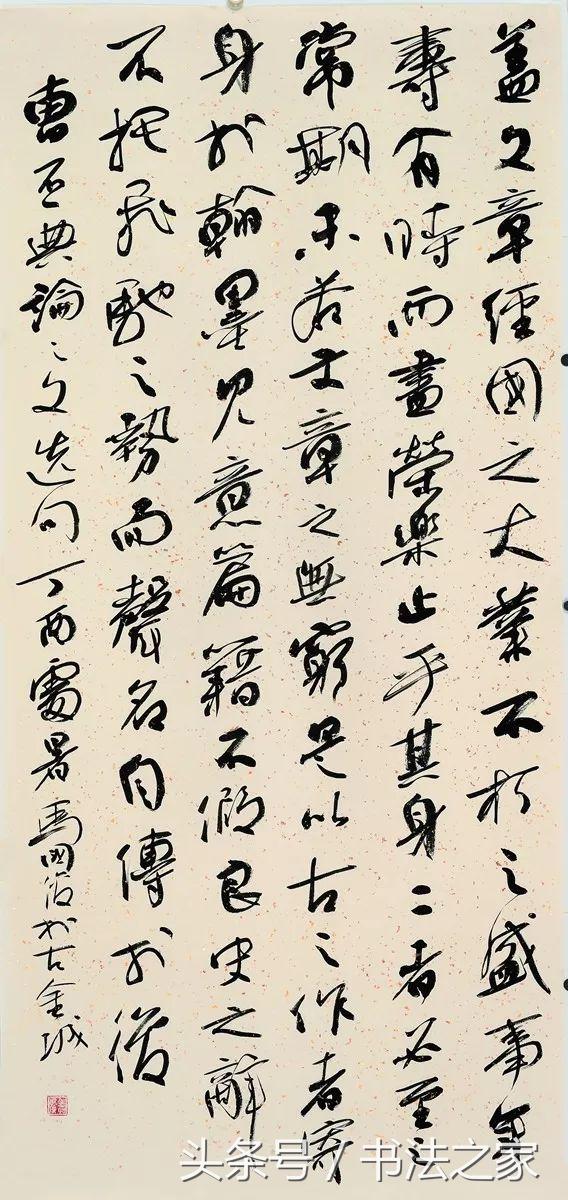 蓋文章經國之大業不朽之盛事年
壽有時而盡榮樂止乎其身二者必至之
常期未若文章之無窮是以古之作者寄
身於翰墨見意篇籍不假良史之辭
不托飛馳之勢而聲名自傳於後
曹丕典論々文选句丁酉處暑馬國俊於古金城
头条号 / 书法之家